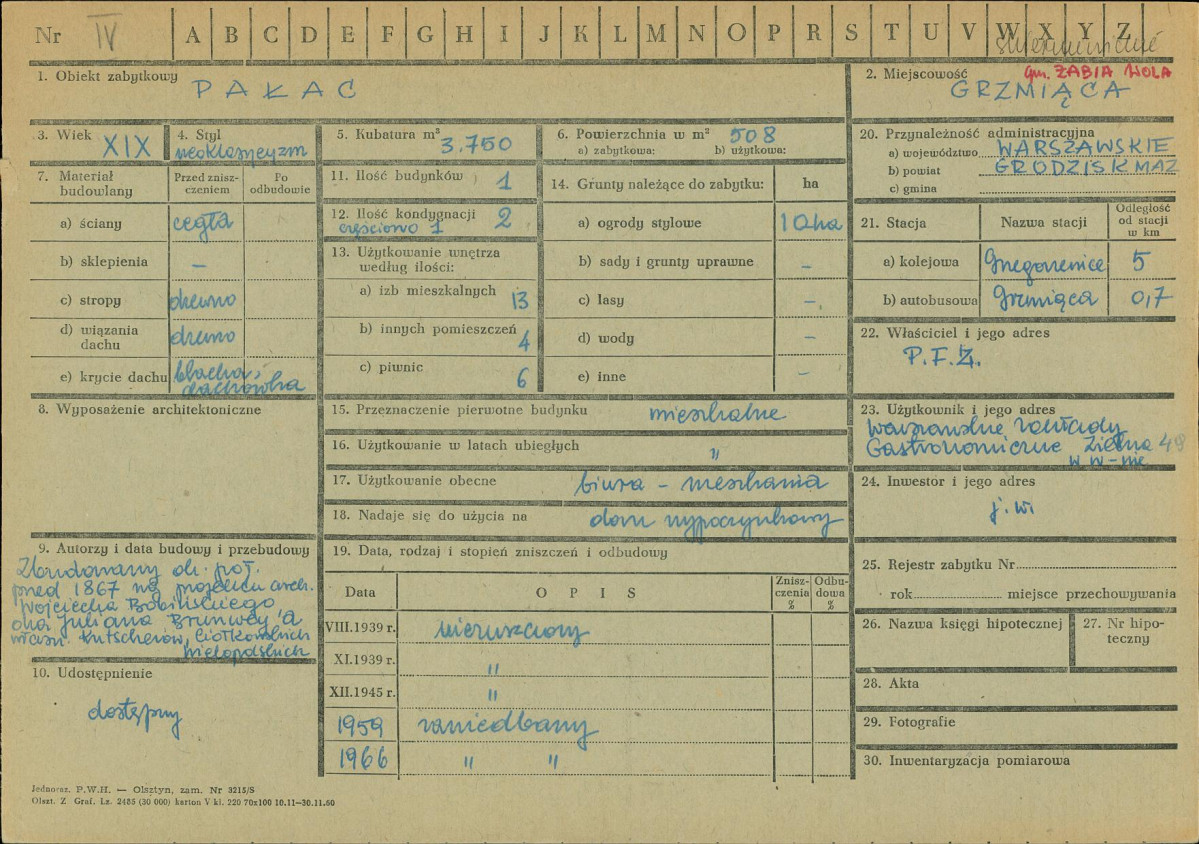 Nr IV A B C D E F G H I J K L M N O P R S T U V W X Y Z
skierniewickie
1. Obiekt zabytkowy PAŁAC
2. Miejscowość gm. ŻABIA WOLA
GRZMIĄCA
3. Wiek XIX
4. Styl neoklasycyzm
5. Kubatura m³ 3.750
6. Powierzchnia w m² 508
a) zabytkowa: b) użytkowa:
7. Materiał budowlany
Przed zniszczeniem
Po odbudowie
a) ściany cegła
b) sklepienia –
c) stropy drewno
d) wiązania dachu drewno
e) krycie dachu blacha, dachówka
8. Wyposażenie architektoniczne
9. Autorzy i data budowy i przebudowy
Zbudowany ok. poł.
przed 1867 wg projektu arch.
Wojciecha Bobińskiego
dla Juliana Brunwey'a
własn. Kutscherów, Ciołkowskich
Wielopolskich
10. Udostępnienie
dostępny
11. Ilość budynków 1
12. Ilość kondygnacji 2
częściowo 1
13. Użytkowanie wnętrza
według ilości:
a) izb mieszkalnych 13
b) innych pomieszczeń 4
c) piwnic 6
14. Grunty należące do zabytku: ha
a) ogrody stylowe 10ha
b) sady i grunty uprawne –
c) lasy –
d) wody –
e) inne –
15. Przeznaczenie pierwotne budynku mieszkalne
16. Użytkowanie w latach ubiegłych "
17. Użytkowanie obecne biura – mieszkania
18. Nadaje się do użycia na dom wypoczynkowy
19. Data, rodzaj i stopień zniszczeń i odbudowy
Data OPIS Zniszczenia % Odbudowa %
VIII.1939 r. niezniszczony
XI.1939 r. "
XII.1945 r. "
1959 zaniedbany
1966 " "
20. Przynależność administracyjna
a) województwo WARSZAWSKIE
b) powiat GRODZISK MAZ
c) gmina
21. Stacja Nazwa stacji Odległość od stacji w km
a) kolejowa 5
b) autobusowa Grzmiąca 0,7
22. Właściciel i jego adres
P.F.Z.
23. Użytkownik i jego adres
Warszawskie Zakłady
Gastronomiczne Zielna 49
w W-wie
24. Inwestor i jego adres
j.w.
25. Rejestr zabytku Nr
rok miejsce przechowywania
26. Nazwa księgi hipotecznej
27. Nr hipoteczny
28. Akta
29. Fotografie
30. Inwentaryzacja pomiarowa
Jednoraz. P.W.H. — Olsztyn, zam. Nr 3215/S
Olszt. Z Graf. Lz. 2485 (30 000) karton V kl. 220 70x100 10.11—30.11.60